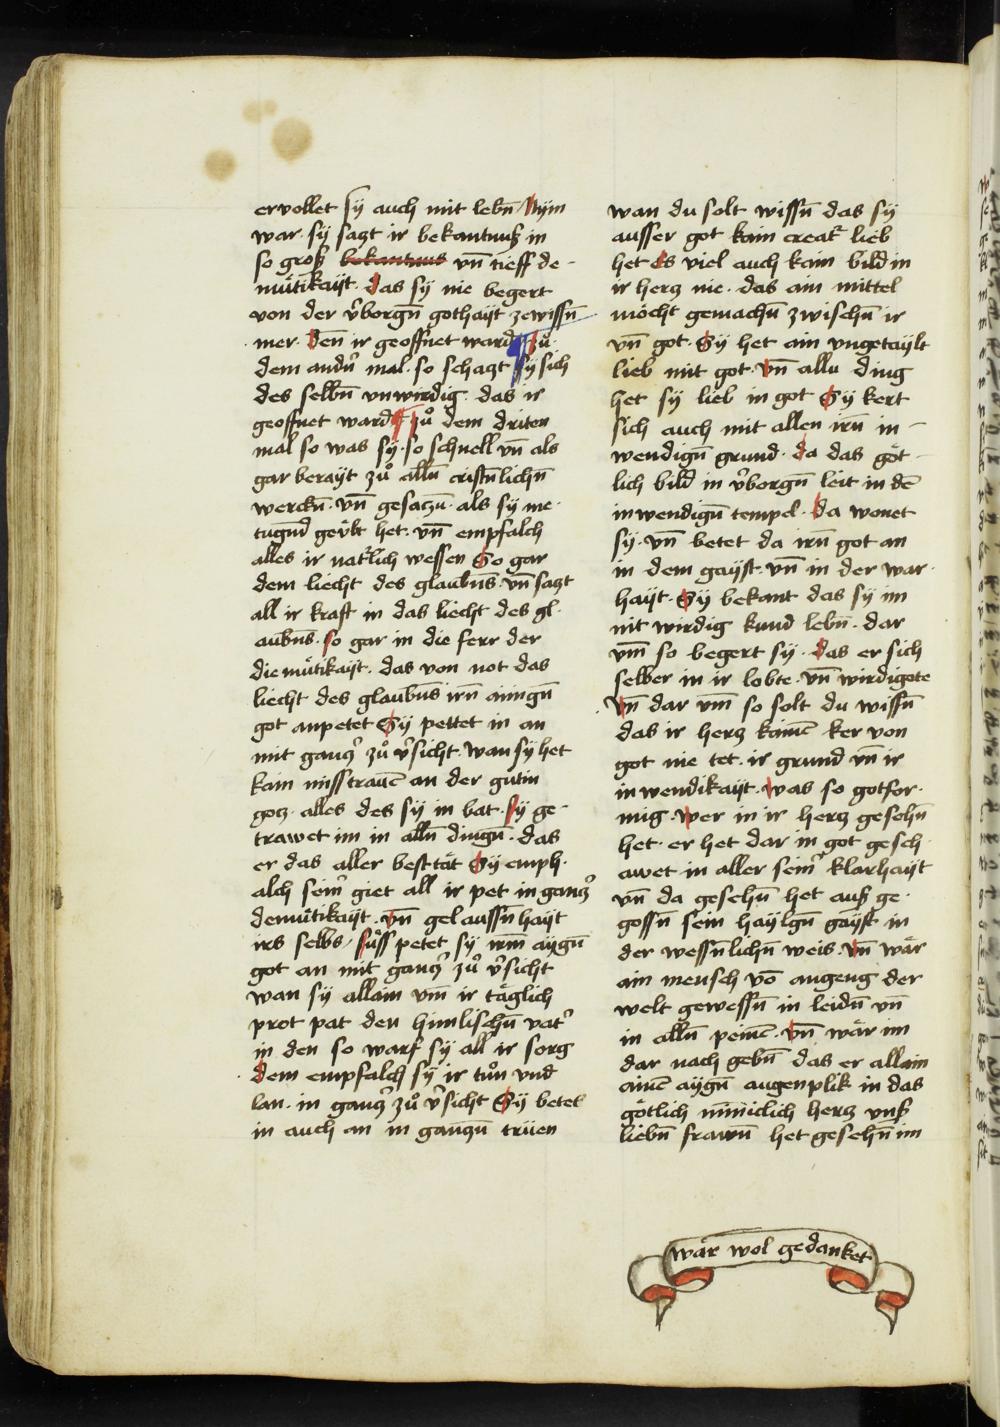 ervollet sÿ auch mit lebn̄ / Nÿm
war · sÿ sazt ir bekantnuß in
so groß bekantnus vn̄ tieff de-
mütikaÿt · Das sÿ nie begert
von der v̾borgn̄ gothaÿt zewissn̄
mer · Den̄ ir geoffnet ward ¶ Zů
dem andn̾ mal · so schazt sÿ sich
des selbn̄ vnwirdig · das ir
geoffnet ward ¶ Zů dem driten
mal so was sÿ · so schnell vn̄ als
gar beraÿt zů alln̄ cristnlichn̄
werckn̄ · vn̄ gesaczn̄ · als sÿ me ·
tugnd geu̇bt het · vn̄ empfalch
alles ir natr̾lich wessen So gar
dem liecht des glaubns · vn̄ sazt
all ir kraft in das liecht des gl·
aubns · so gar in die ferr der
die mütikaÿt · das von not das
liecht des glaubns irn̄ ainign̄
got anpetet Sÿ pettet in an
mit gancz̾ zů v̾sicht · wan sÿ het
kain misstrauē an der gütin
gocz · alles des sÿ in bat · Sÿ ge-
trawet im in alln̄ dingn̄ · das
er das aller best tät Sÿ emph·
alch seim̾ giet all ir pet in gancz̾
demütikaÿt · vn̄ gelaussn̄haÿt
irs selbs / suss petet sÿ irm̄ aÿgn̄
got an mit gancz̾ zů v̾sicht
wan sÿ allain vm̄ ir täglich
prot pat den himlischn̄ vat̾
in den so warf sÿ all ir sorg
dem empfalch sÿ ir tůn vnd
lan · in gancz̾ zů v̾sicht Sÿ betet
in auch an in ganczn̄ trüen
wan du solt wissn̄ das sÿ
ausser got kain creat̾ lieb
het Es viel auch kain bild in
ir hercz nie · das ain mittel
möcht gemachn̄ zwischn̄ ir
vn̄ got · Sÿ het ain vngetaÿlt
lieb mit got · vn̄ allu ding
het sÿ lieb in got Sÿ kert
sich auch mit allen irn̄ in-
wendign̄ grund · da das göt-
lich bild in v̾borgn̄ leit in dē
inwendign̄ tempel · Da wonet
sÿ · vn̄ betet da irn̄ got an
in dem gaÿst · vn̄ in der war·
haÿt · Sÿ bekant das sÿ im
nit wirdig kund lebn̄ · dar
vm̄ so begert sÿ · Das er sich
selber in ir lobte · vn̄ wirdigote
Vn̄ dar vm̄ so solt du wissn̄
das ir hercz kainē ker von
got nie tet · ir grund vn̄ ir
inwendikaÿt · was so gotfor·
mig · Wer in ir hercz gesehn̄
het · er het dar in got gesch·
awet in aller seim̾ klarhaÿt
vn̄ da gesehn̄ het auß ge·
gossn̄ sein haÿlgn̄ gaÿst in
der wessn̄lichn̄ weis · Vn̄ wär
ain mensch vō angeng der
welt gewessn̄ in leidn̄ vn̄
in alln̄ peinē · vn̄ wär im
dar nach gebn̄ das er allain
ainē aÿgn̄ augenplik in das
götlich miniclich hercz vnß
liebn̄ frawn̄ het gesehn̄ im
wär wol gedanket